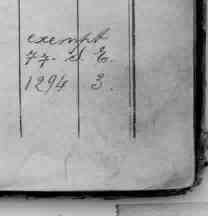 exempt
77. d. E.
1294 3.